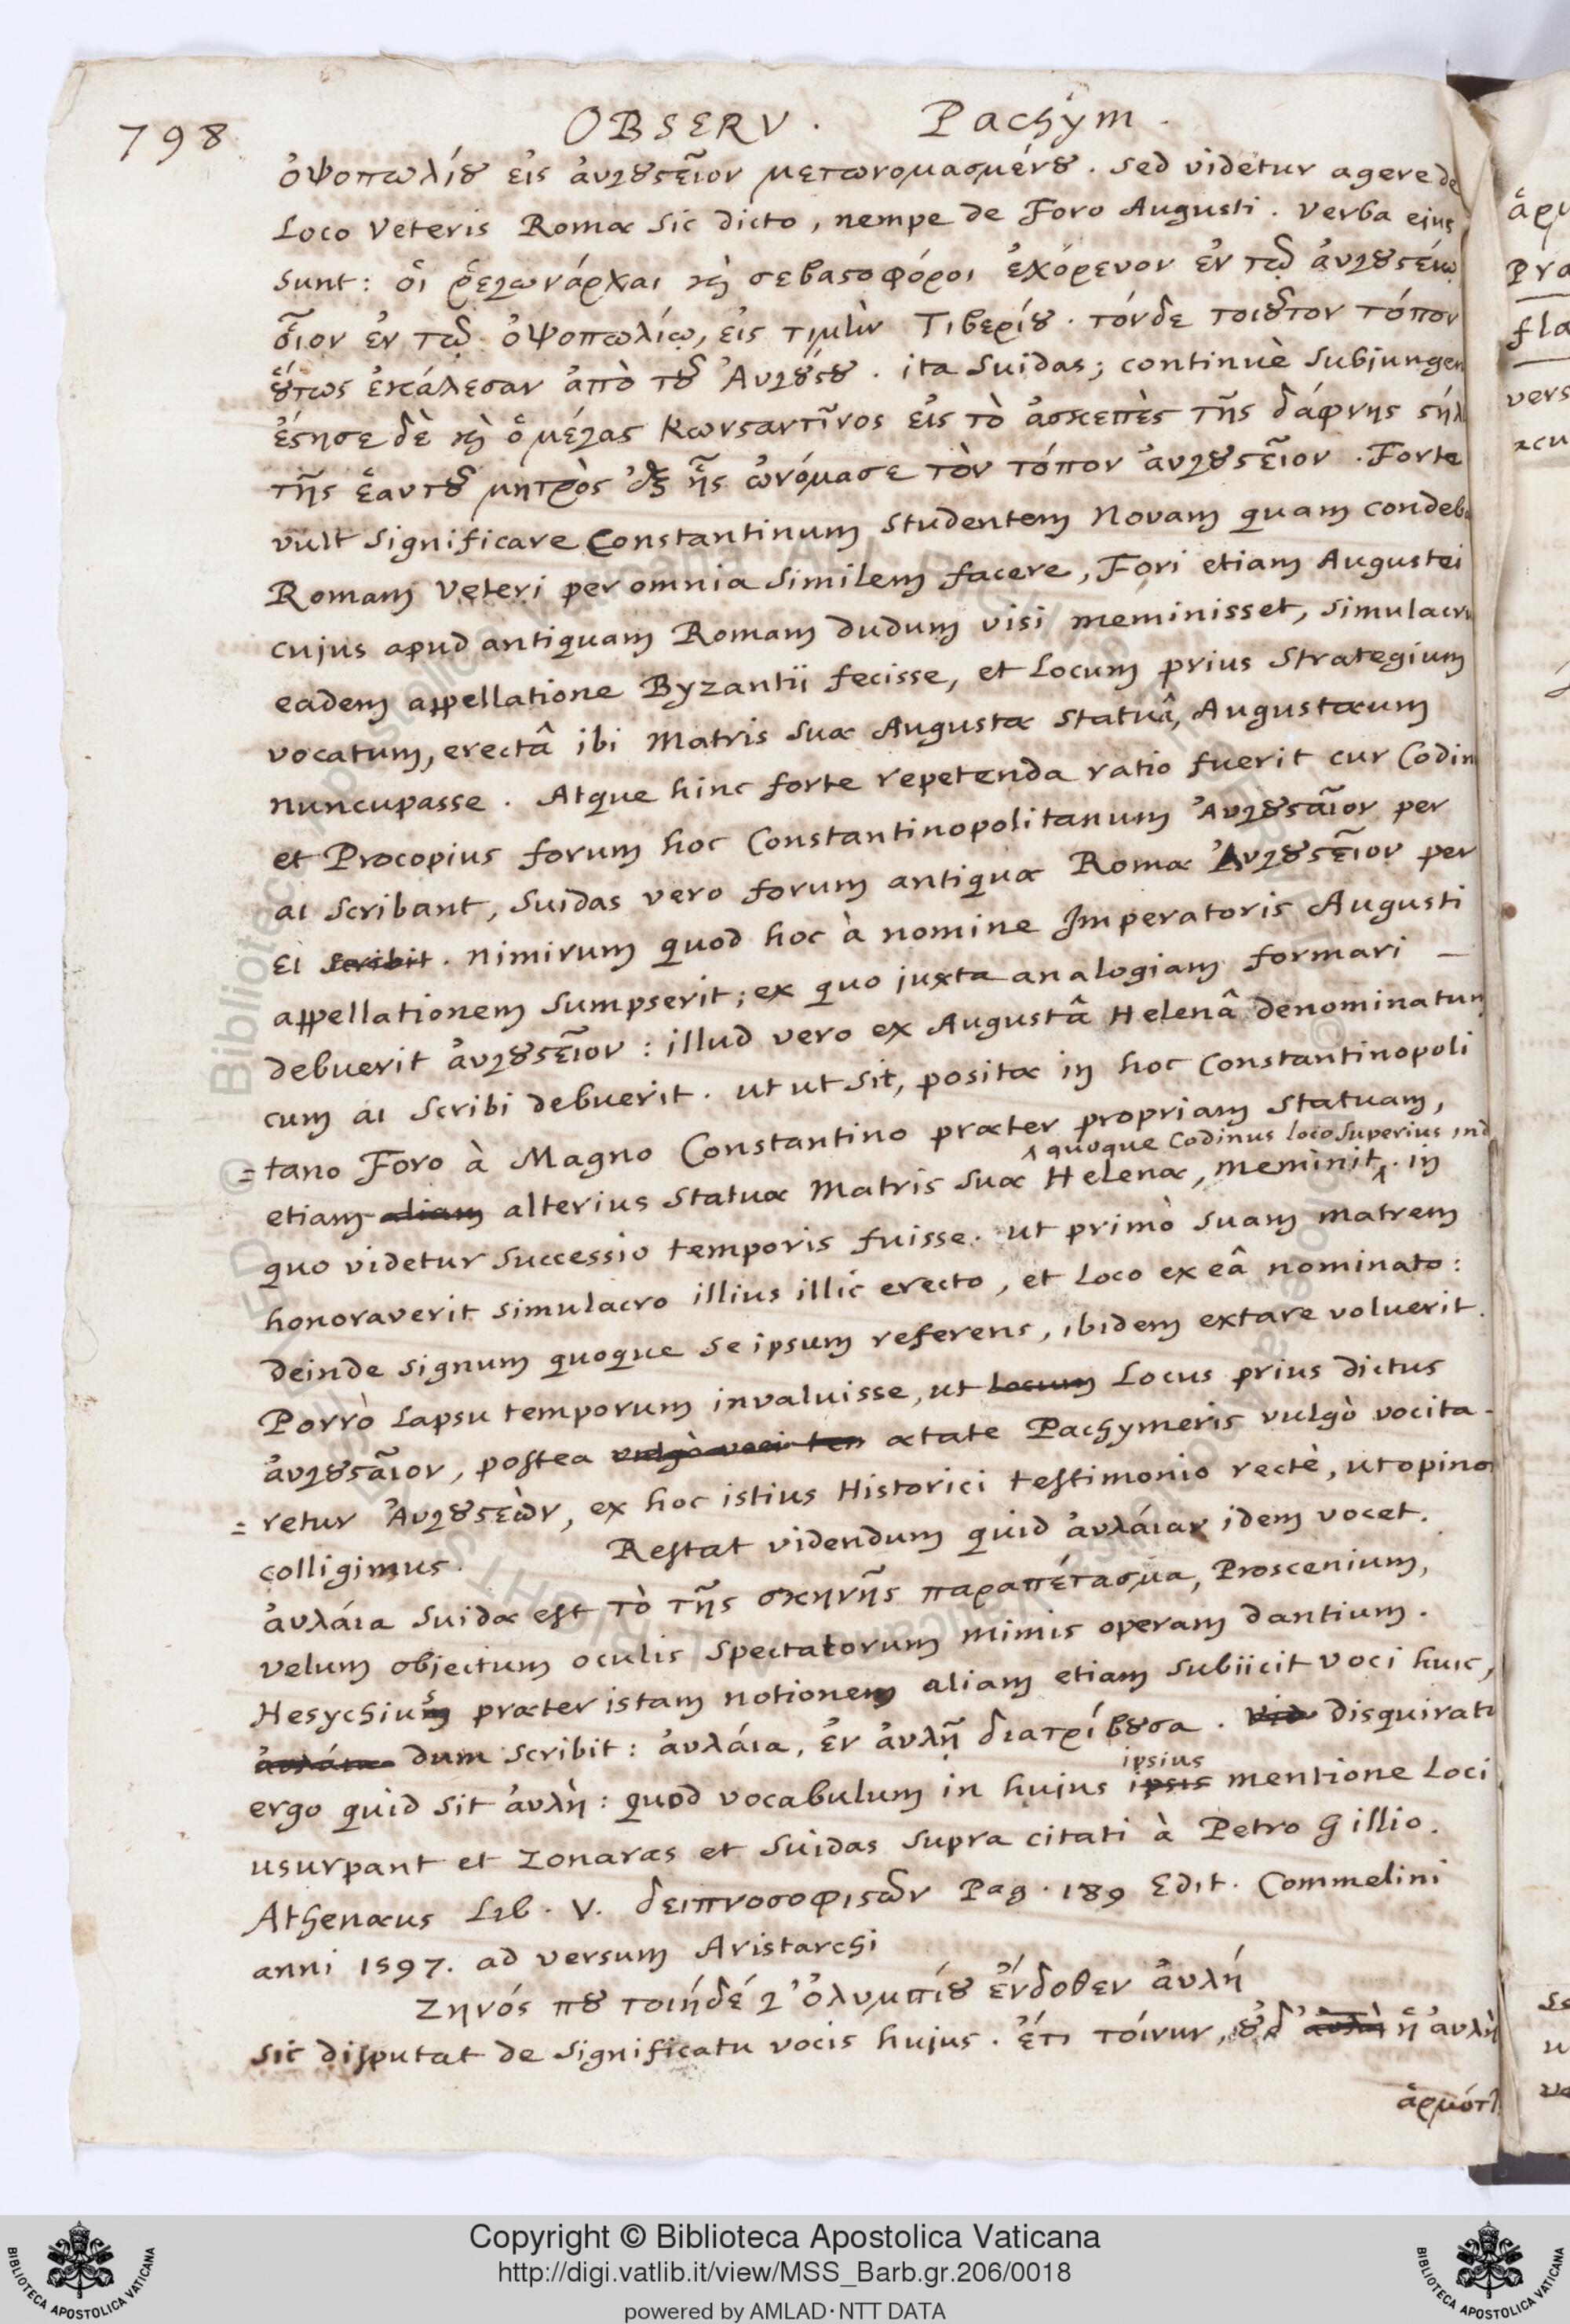 798 OBSERV. Pachym.
ὀψοπωλίȣ εἰς ἀυγȣϛεῖον μετωνομασμένȣ. sed videtur agere de
Loco Veteris Romæ sic dicto, nempe de Foro Augusti. Verba ejus
sunt: ὁι ῥεγωνάρχαι καὶ σεβαϛοφόροι ἐχόρευον ἐν τῷ ἀυγȣϛείῳ
ὅιον ἐν τῷ ὀψοπωλίῳ, εἰς τιμὴν Τιβερίȣ. τόνδε τοιȣ͂τον τόπον
ȣ̔́τως ἐκάλεσαν ἀπὸ τȣ͂ Ἀυγȣ́ϛȣ. ita Suidas; continuè subjungen
ἔϛησε δὲ καὶ ὁ μέγας Κωνϛαντῖνος εἰς τὸ ἀσκεπὲς τῆς δάφνης ϛήλ
τῆς ἑαυτȣ͂ μητρὸς ἐξ ἧς ὠνόμασε τὸν τόπον ἀυγȣϛεῖον. Forte
vult significare Constantinum studentem Novam quam condeba
Romam Veteri per omnia similem facere, Fori etiam Augustei
cujus apud antiquam Romam dudum visi meminisset, simulacru
eadem appellatione Byzantii fecisse, et Locum prius Strategium
vocatum, erectâ ibi Matris suæ Augustæ statuâ, Augustæum
nuncupasse. Atque hinc forte repetenda ratio fuerit cur Codin
et Procopius forum hoc Constantinopolitanum Ἀυγȣϛαῖον per
αι scribant, Suidas vero forum antiquæ Romæ Ἀυγȣϛεῖον per
ει scribit. nimirum quod hoc à nomine Imperatoris Augusti
appellationem sumpserit; ex quo juxta analogiam formari _
debuerit ἀυγȣϛεῖον: illud vero ex Augustâ Helenâ denominatum
cum αι scribi debuerit. ut ut sit, positæ in hoc Constantinopoli
=tano Foro à Magno Constantino præter propriam statuam,
quoque Codinus loco superius ind
etiam aliam alterius statuæ Matris suæ Helenæ, meminit. in
quo videtur successio temporis fuisse. ut primò suam matrem
honoraverit simulacro illius illic erecto, et Loco ex eâ nominato:
deinde signum quoque se ipsum referens, ibidem extare voluerit.
Porrò Lapsu temporum invaluisse, ut locum Locus prius dictus
ἀυγȣϛαῖον, postea vulgò voci ten ætate Pachymeris vulgò vocita-
=retur Ἀυγȣϛεὼν, ex hoc istius Historici testimonio rectè, ut opinor
colligimus. Restat videndum quid ἀυλάιαν idem vocet.
ἀυλάια Suidæ est τὸ τῆς σκηνῆς παραπέτασμα, Proscenium,
velum objectum oculis spectatorum mimis operam dantium.
Hesychius præter istam notionem aliam etiam subiicit voci huic,
ἀυλάια dum scribit: ἀυλάια, ἐν ἀυλῇ διατρίβȣσα. Vid disquirat
ipsius
ergo quid sit ἀυλὴ: quod vocabulum in hujus ipsis mentione Loci
usurpant et Zonaras et Suidas supra citati à Petro Gillio.
Athenæus Lib. V. δειπνοσοφιϛῶν Pag. 189 Edit. Commelini
anni 1597. ad versum Aristarchi
Ζηνός πȣ τοιήδέ γ' ὀλυμπίȣ ἔνδοθεν ἀυλή
sic disputat de significatu vocis hujus. ἔτι τόινυν, ȣ̓δ' ἀυλὴ ἡ ἀυλὴ
ἁρμότ